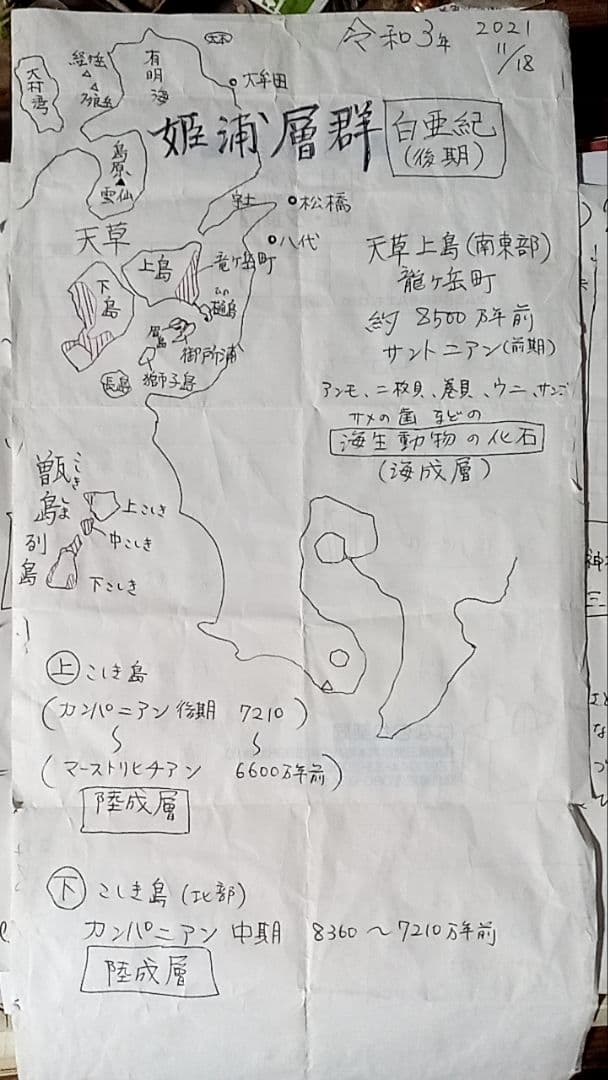 令和3年 2021
11/18
有明海
大村湾
経ヶ岳
大牟田
姫浦層群
白亜紀
(後期)
島原
雲仙
宇土
松橋
八代
天草
上島
竜ヶ岳町
下島
樋島
御所浦
獅子島
長島
天草上島(南東部)
龍ヶ岳町
約 8500万年前
サントニアン(前期)
アンモ、二枚貝、巻貝、ウニ、サンゴ
サメの歯 などの
海生動物の化石
(海成層)
こしきしま
甑島列島
上こしき
中こしき
下こしき
上 こしき島
(カンパニアン後期 7210)
〜 〜
(マーストリヒチアン 6600万年前)
陸成層
下 こしき島(北部)
カンパニアン中期 8360〜7210万年前
陸成層